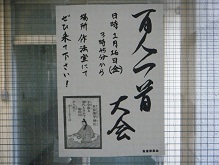 百人一首
大会
日時 2月16日(金)
3時45分から
場所 作法室にて
ぜひ来て下さい!